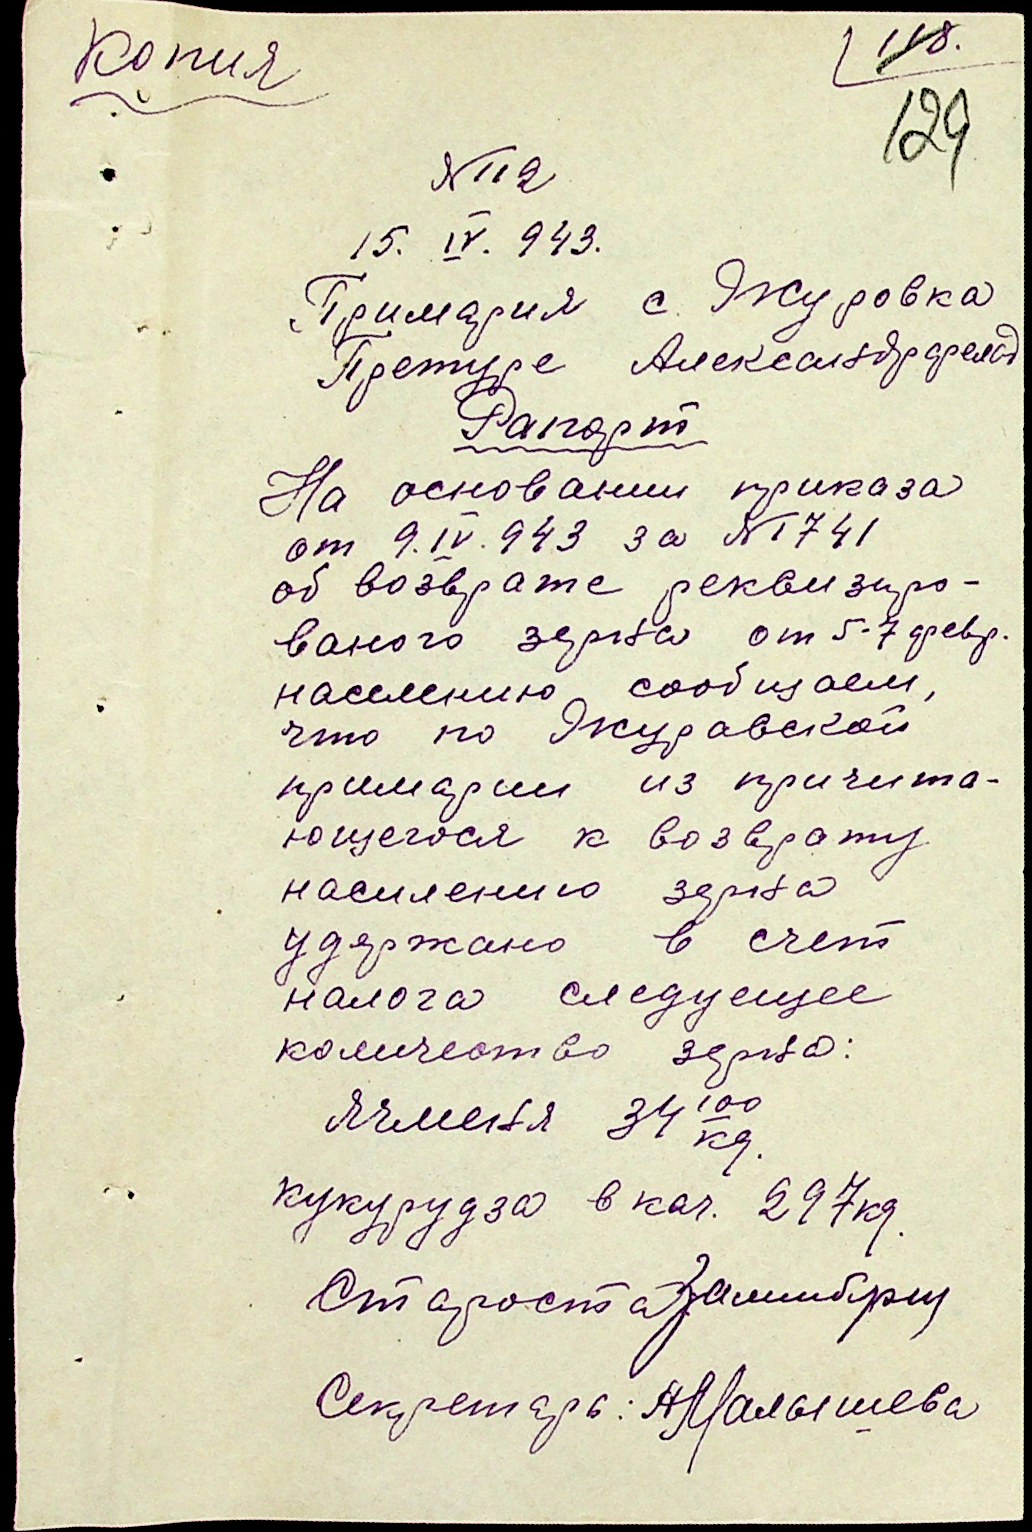 Копия
118.
129
№ 112
15. IV. 943.
Примария с. Журовка
Претуре Александрфельд
Рапорт
На основании приказа
от 9.IV.943 за № 1741
об возврате реквизиро-
ваного зерна от 5-7 февр.
населению, сообщаем,
что по Журавской
примарии из причита-
ющегося к возврату
населению зерна
удержано в счет
налога следующее
количество зерна:
Ячменя 34 100 кг.
кукурудза в кач. 297 кг.
Староста
Секретарь: АМалышева